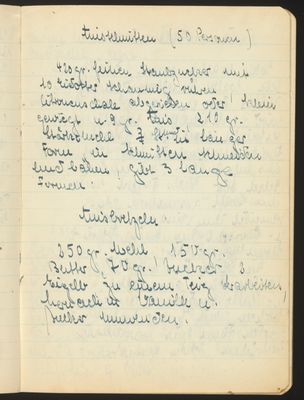 Anisschnitten (50 Personen)
420 gr. feinen Staubzucker mit
10 Eidotter schaumig rühren
Citronenschale abgerieben oder klein
gewiegt u. 9 gr. Anis 210 gr.
Stärkemehl ¾ Std. in langer
Form, in Schnitten schneiden
und bähen, gibt 3 lange
Formen.
Anisbretzeln
250 gr. Mehl 150 gr.
Butter, 70 gr. Zucker 3
Eigelb zu einem Teig verarbeiten,
in Vanille u.
Zucker umwenden.